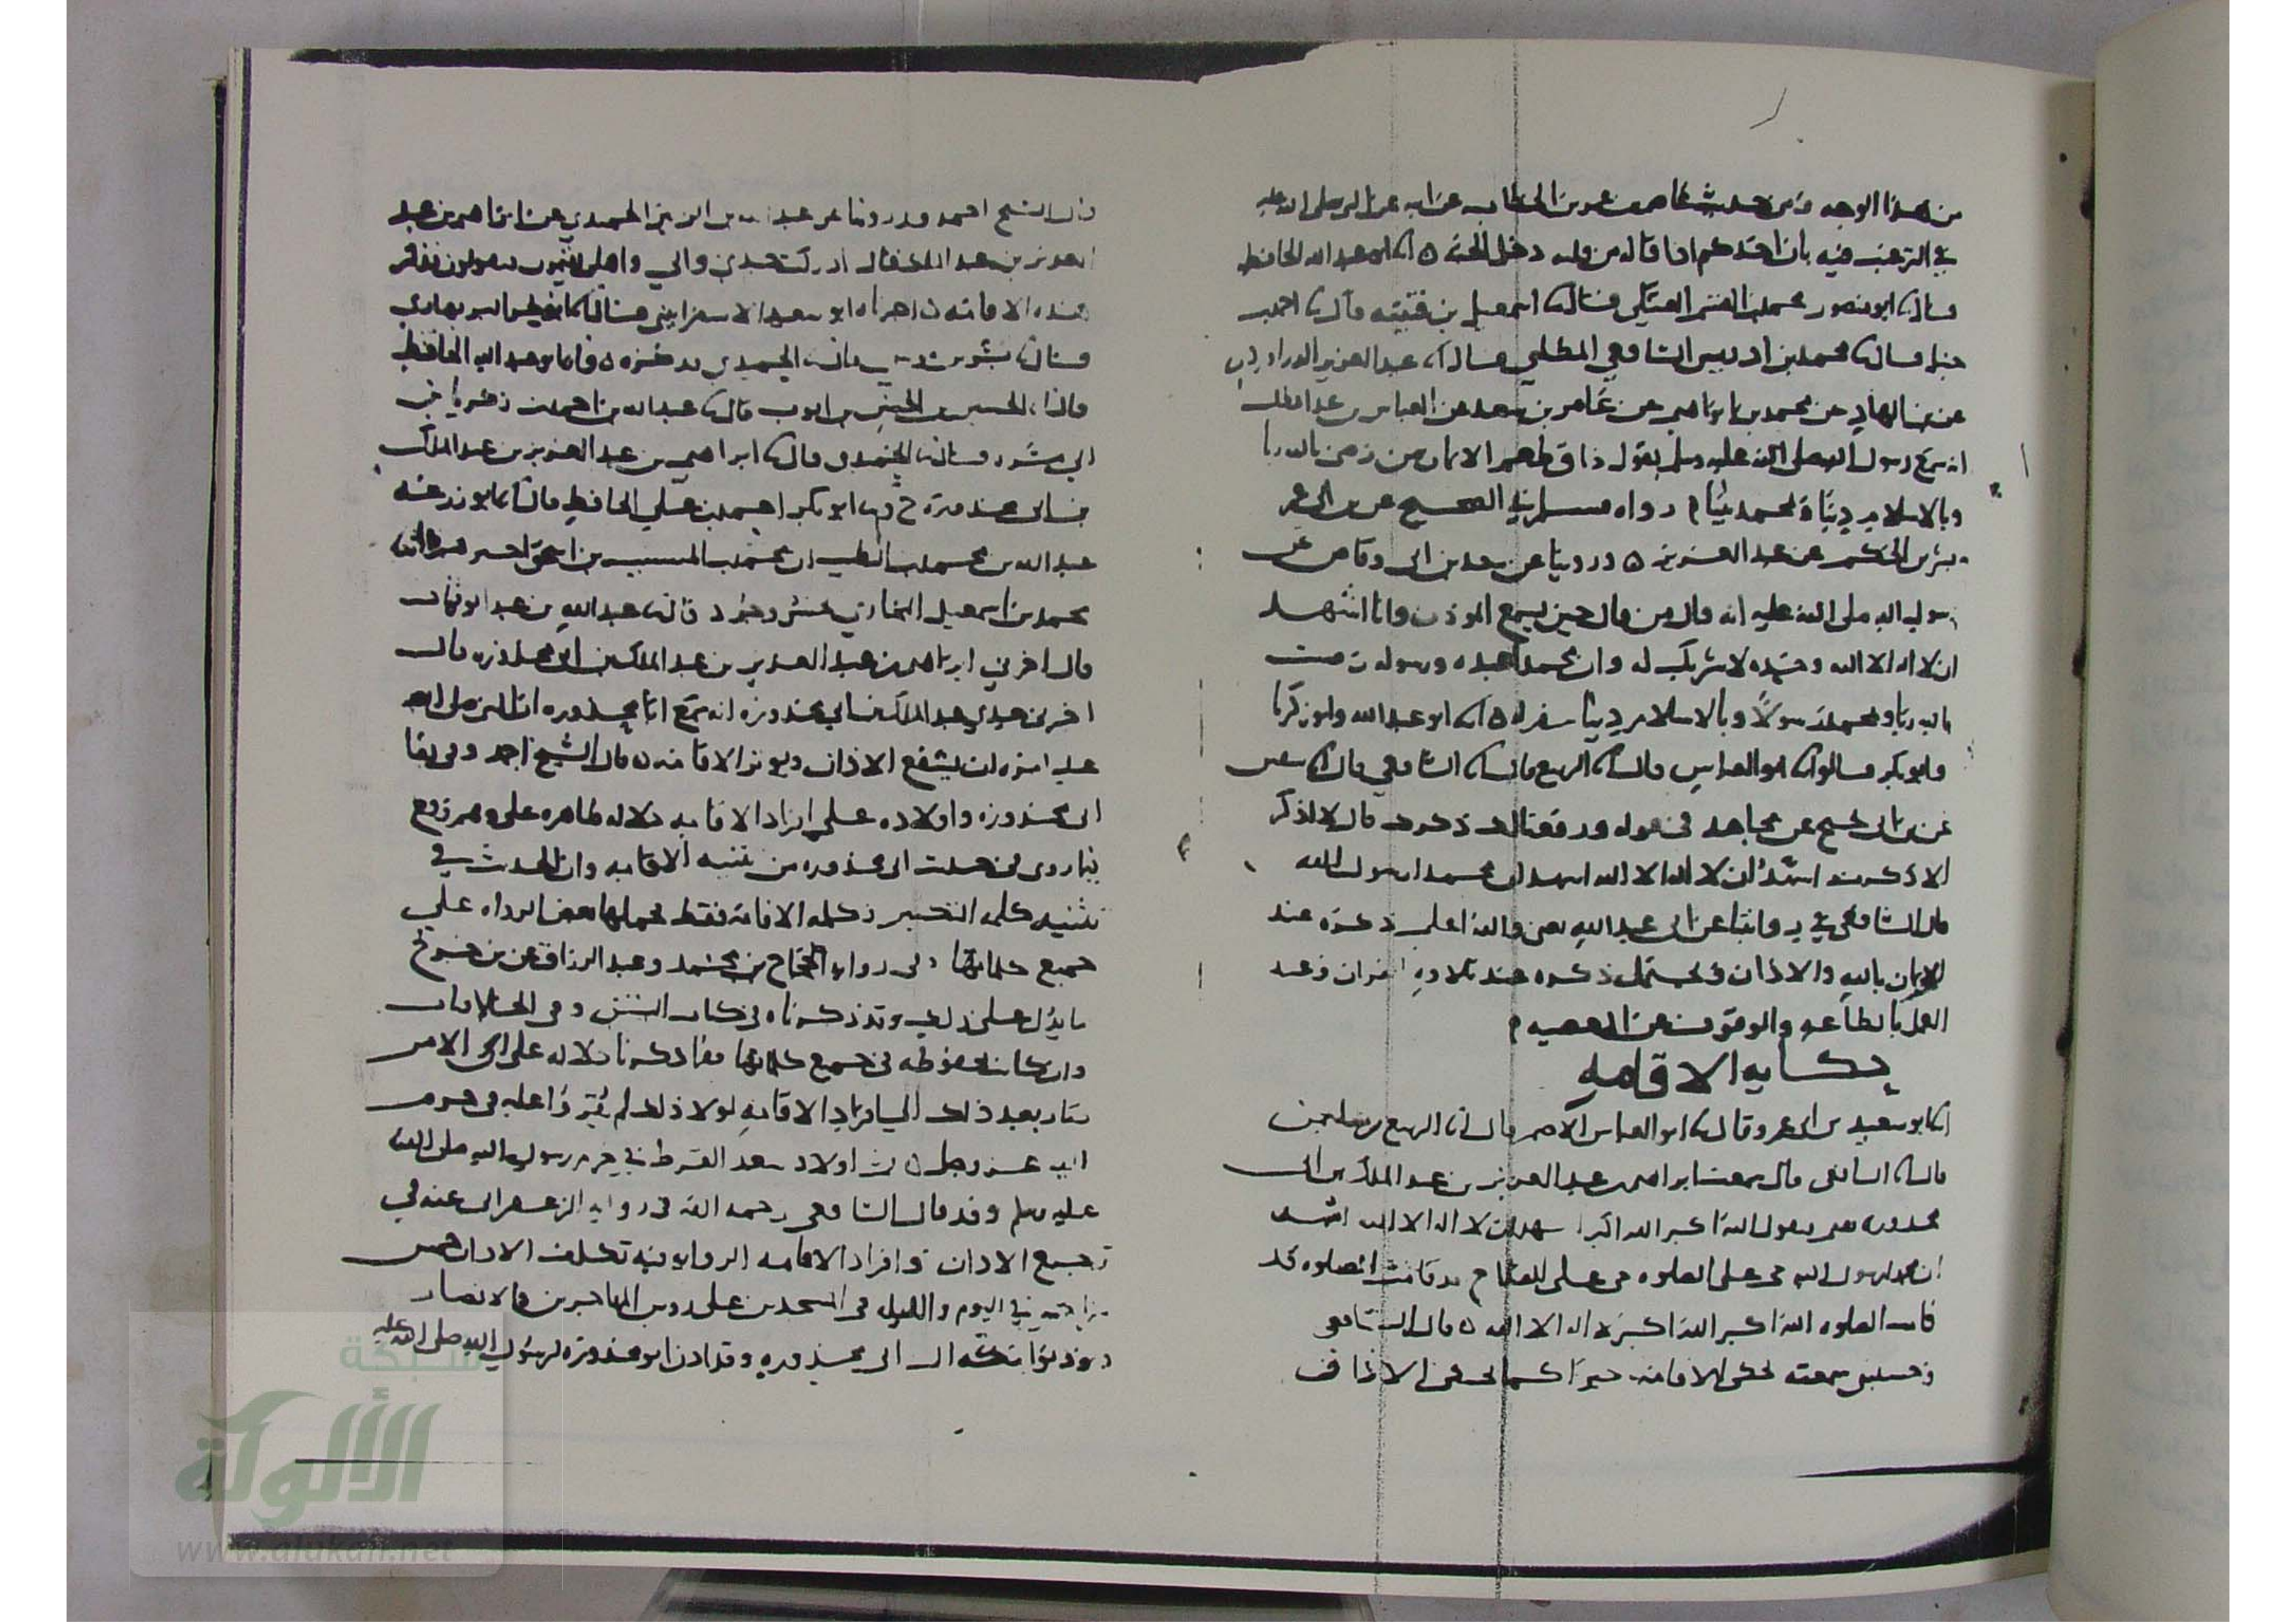 من هذا الوجه ومن حديث عاصم بن عمر بن الخطاب عن ابيه عن النبي صلى الله عليه
في الترغيب فيه بان احدكم اذا قاله من قلبه دخل الجنة ه ابو عبد الله الحافظ
قال ابو منصور محمد بن القسم العتكي قال اسمعيل بن قتيبة قال احمد بن
حنبل قال محمد بن ادريس الشافعي المطلبي قال عبد العزيز الدراوردي
عن بن الهاد عن محمد بن ابراهيم عن عامر بن سعد عن العباس بن عبد المطلب
انه سمع رسول الله صلى الله عليه وسلم يقول ذاق طعم الايمان من رضي بالله ربا
وبالاسلام دينا وبمحمد نبيا م رواه مسلم في الصحيح عن بن ابي عمر
وبشر بن الحكم عن عبد العزيز ه وروينا عن سعد بن ابي وقاص عن
رسول الله صلى الله عليه انه قال من قال حين يسمع الموذن وانا اشهد
ان لا اله الا الله وحده لا شريك له وان محمدا عبده ورسوله رضيت
بالله ربا وبمحمد رسولا وبالاسلام دينا غفر له ه ابو عبد الله وابو زكريا
وابو بكر قالوا ابو العباس قال الربيع قال الشافعي قال بن عيينه
عن بن ابي نجيح عن مجاهد في قوله ورفعنا لك ذكرك قال لا اذكر
الا ذكرت اشهد ان لا اله الا الله اشهد ان محمدا رسول الله
قال الشافعي في روايتنا عن ابي عبد الله يعني والله اعلم ذكره عند
الايمان بالله والاذان ويحتمل ذكره عند تلاوة القران وعند
العمل بالطاعه والوقوف عن المعصيه م
حكايه الاقامه
ابو سعيد بن ابي عمرو قال ابو العباس الاصم قال الربيع بن سليمن
قال الشافعي قال سمعت ابراهيم بن عبد العزيز بن عبد الملك بن ابي
محذوره يقيم يقول الله اكبر الله اكبر اشهد ان لا اله الا الله اشهد
ان محمدا رسول الله حي على الصلوه حي على الفلاح قد قامت الصلوه قد
قامت الصلوه الله اكبر الله اكبر لا اله الا الله ه قال الشافعي
وحسبتني سمعته يحكي الاقامه خبرا كما يحكي الاذان
قال الشيخ احمد وقد روينا عن عبد الله بن الزبير الحميدي عن ابراهيم بن عبد
العزيز بن عبد الملك قال ادركت جدي وابي واهلي يقيمون فيقولون فذكر
هذه الاقامة ه اخبرناه ابو سعيد الاسفرايني قال ابو بحر البربهاري
قال بشر بن موسى قال الحميدي فذكره ه واخبرنا ابو عبد الله الحافظ
قال الحسين بن الحسن بن ايوب قال عبد الله بن احمد بن زكريا بن
ابي مسره قال الحميدي قال ابراهيم بن عبد العزيز بن عبد الملك
بن ابي محذورة ح ابو بكر احمد بن علي الحافظ قال ابو زرعه
عبد الله بن محمد بن الطيب ان محمد بن المسيب بن اسحق اخبرهم قال
محمد بن اسمعيل البخاري بخسروجرد قال عبد الله بن عبد الوهاب
قال اخبرني ابراهيم بن عبد العزيز بن عبد الملك بن ابي محذوره قال
اخبرني جدي عبد الملك بن ابي محذوره انه سمع ابا محذوره ان النبي صلى الله
عليه امره ان يشفع الاذان ويوتر الاقامة ه قال الشيخ احمد وفي بقا
ابي محذوره واولاده على افراد الاقامه دلاله ظاهره على وهم وقع
فيما روى في حديث ابي محذوره من تثنيه الاقامه وان الحديث في
تثنيه كلمه التكبير وكلمه الاقامة فقط فحملها بعض الرواه على
جميع كلماتها وفي روايه الحجاج بن محمد وعبد الرزاق عن بن جريج
ما يدل على ذلك وقد ذكرناه في كتاب السنن وفي الخلافيات
وان كانت محفوظه في جميع كلماتها ففيما ذكرنا دلاله على ان الامر
صار بعد ذلك الى افراد الاقامة لولا ذلك لم يقروا عليه في حرم
الله عز وجل ه ثم اولاد سعد القرظ في حرم رسول الله صلى الله
عليه وسلم وقد قال الشافعي رحمه الله في روايه الزعفراني عنه في
ترجيع الاذان وافراد الاقامه الروايه فيه تكلف الاذان خمس
مرات في اليوم والليله في المسجدين على روس المهاجرين والانصار
وموذنوا مكه ال ابي محذوره وقد اذن ابو محذورة لرسول الله صلى الله عليه
شبكة
الألوكة
www.alukah.net